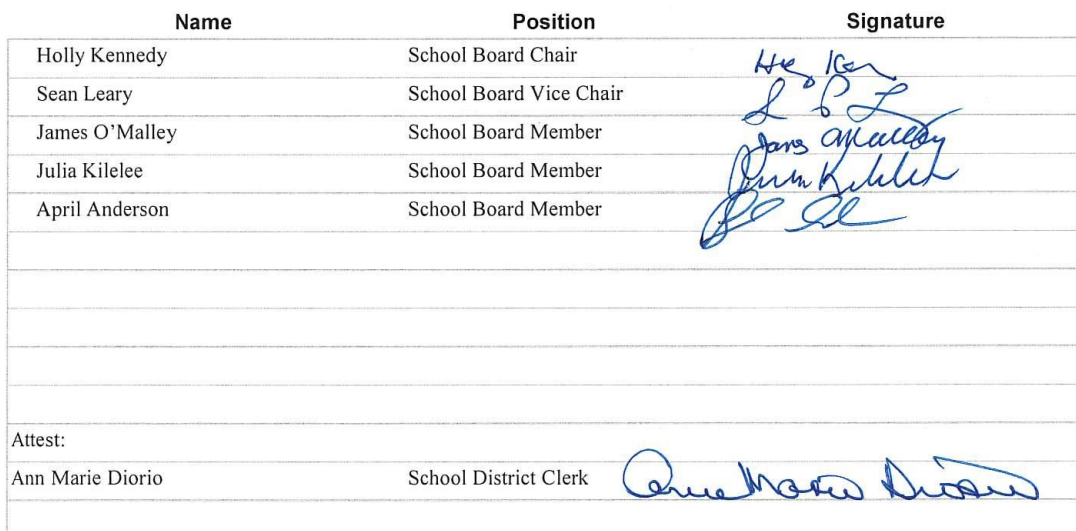 Name Position Signature
Holly Kennedy School Board Chair
Sean Leary School Board Vice Chair
James O’Malley School Board Member James O'Malley
Julia Kilelee School Board Member
April Anderson School Board Member
Attest:
Ann Marie Diorio School District Clerk Anne Marie Diorio